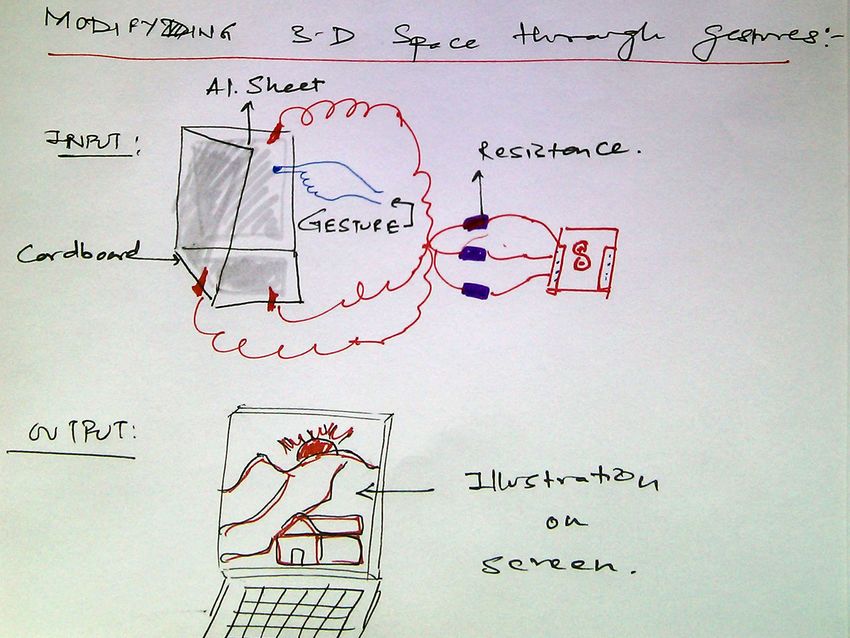 MODIFYING 3-D Space through gestures:-
Al. Sheet
INPUT:
Resistance.
GESTURE
Cardboard
OUTPUT:
Illustration
on
screen.